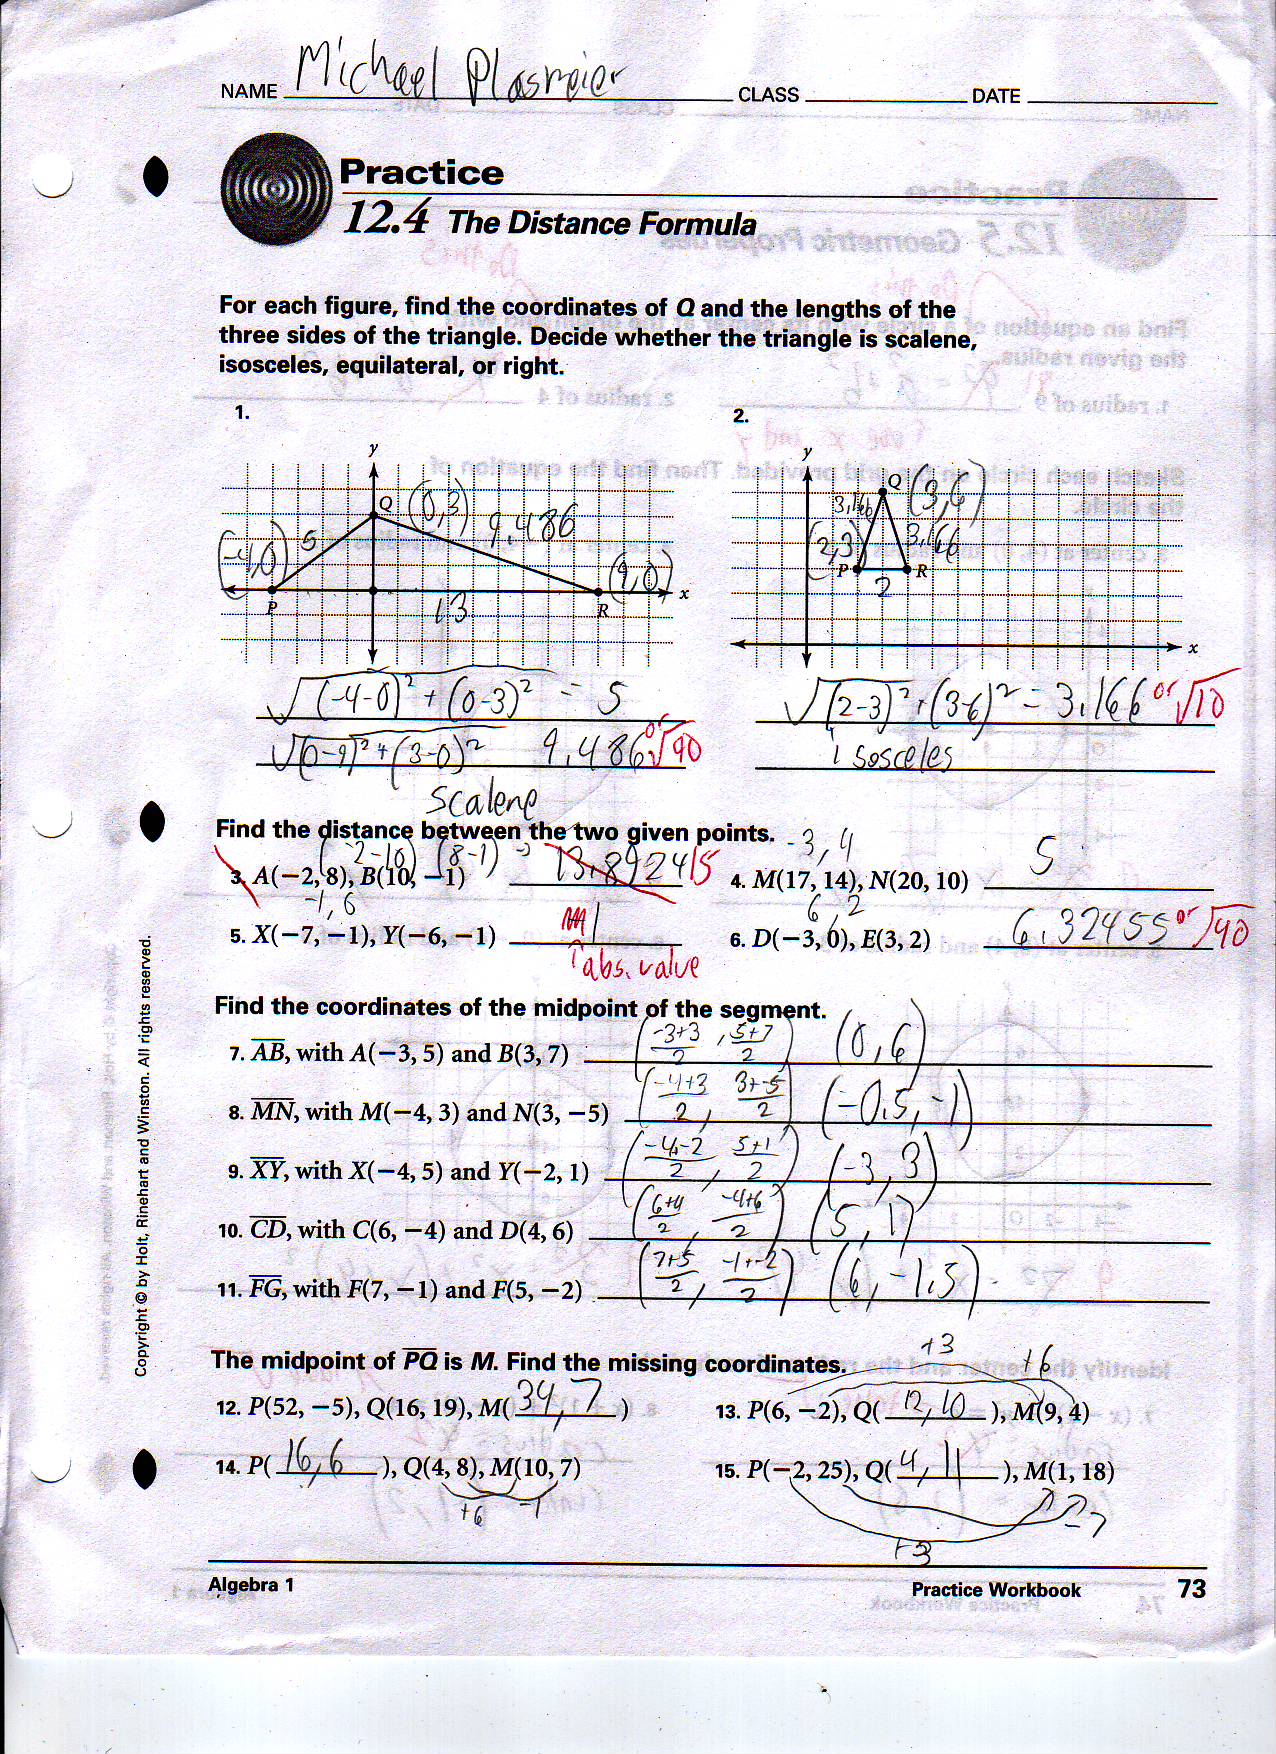 NAME Michael Plasmeier CLASS DATE
Practice
12.4 The Distance Formula
For each figure, find the coordinates of Q and the lengths of the
three sides of the triangle. Decide whether the triangle is scalene,
isosceles, equilateral, or right.
1.
y
Q (0,3)
9.486
5
(-4,0)
(9,0)
x
P
13
R
2.
y
Q (3,6)
3.166
3.166
(2,3)
P
R
2
x
√(-4-0)² + (0-3)² = 5
√(0-9)² + (3-0)² 9.486 or √90
scalene
√(2-3)² + (3-6)² = 3.166 or √10
isosceles
Find the distance between the two given points.
(-2-10) (8-1)
3. A(−2, 8), B(10, −1) 13.892415
-3, 4
4. M(17, 14), N(20, 10) 5
-1, 6
5. X(−7, −1), Y(−6, −1) 1
abs. value
6, 2
6. D(−3, 0), E(3, 2) 6.32455 or √40
Find the coordinates of the midpoint of the segment.
7. AB, with A(−3, 5) and B(3, 7) (-3+3/2, 5+7/2) (0, 6)
8. MN, with M(−4, 3) and N(3, −5) (-4+3/2, 3+-5/2) (-0.5, -1)
9. XY, with X(−4, 5) and Y(−2, 1) (-4-2/2, 5+1/2) (-3, 3)
10. CD, with C(6, −4) and D(4, 6) (6+4/2, -4+6/2) (5, 1)
11. FG, with F(7, −1) and F(5, −2) (7+5/2, -1+-2/2) (6, -1.5)
The midpoint of PQ is M. Find the missing coordinates.
+3
+6
12. P(52, −5), Q(16, 19), M( 34, 7 )
13. P(6, −2), Q( 12, 10 ), M(9, 4)
14. P( 16, 6 ), Q(4, 8), M(10, 7)
+6 -1
15. P(−2, 25), Q( 4, 11 ), M(1, 18)
-7
+3
Algebra 1 Practice Workbook 73
Copyright © by Holt, Rinehart and Winston. All rights reserved.